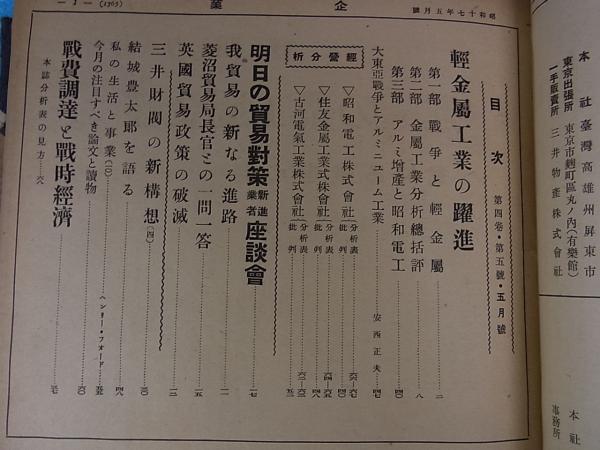 昭和十七年五月號
企業
(1965) — 1 —
目次
第四卷・第五號・五月號
輕金屬工業の躍進
第一部 戰爭と輕金屬 二
第二部 金屬工業分析總括評 八
第三部 アルミ增產と昭和電工 四〇
大東亞戰爭とアルミニューム工業 安西正夫
經營分析
▽昭和電工株式會社(分析表 批判
▽住友金屬工業株式會社(分析表 批判
▽古河電氣工業株式會社(分析表 批判
明日の貿易對策 新進業者 座談會 一七
我貿易の新なる進路 一一
菱沼貿易局長官との一問一答 一五
英國貿易政策の破滅 一三
三井財閥の新構想(四) 三〇
結城豊太郎を語る 四八
私の生活と事業(二) ヘンリー・フォード 五三
今月の注目すべき論文と讀物 六〇
戰費調達と戰時經濟 三七
本誌分析表の見方 六八
本社 臺灣高雄州屏東市
東京出張所 東京市麴町區丸ノ內(有樂館)
一手販賣所 三井物產株式會社
本社
事務所